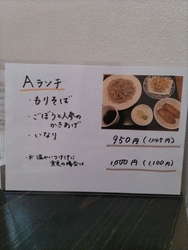 Aランチ
・もりそば
・ごぼうと人参の
かきあげ
・いなり
950円(1,045円)
※温かいつけ汁に
変更の場合は
1,000円(1,100円)